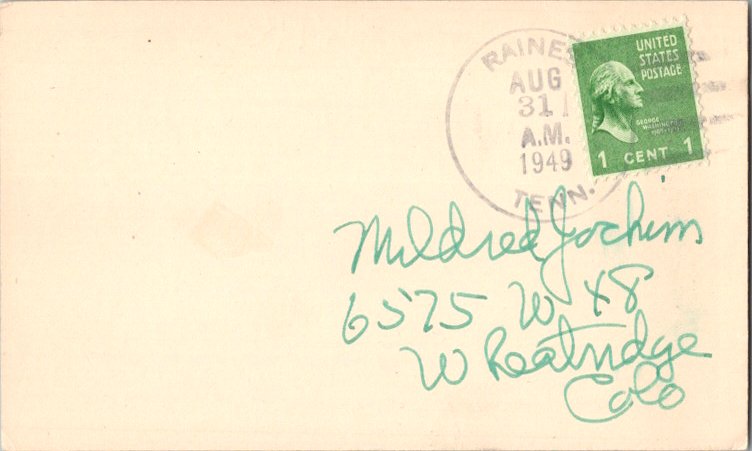 RAINES
AUG
31
A.M.
1949
TENN.
UNITED
STATES
POSTAGE
GEORGE
WASHINGTON
1 CENT 1
Mildred Jochim
6575 W 48
Wheatridge
Colo